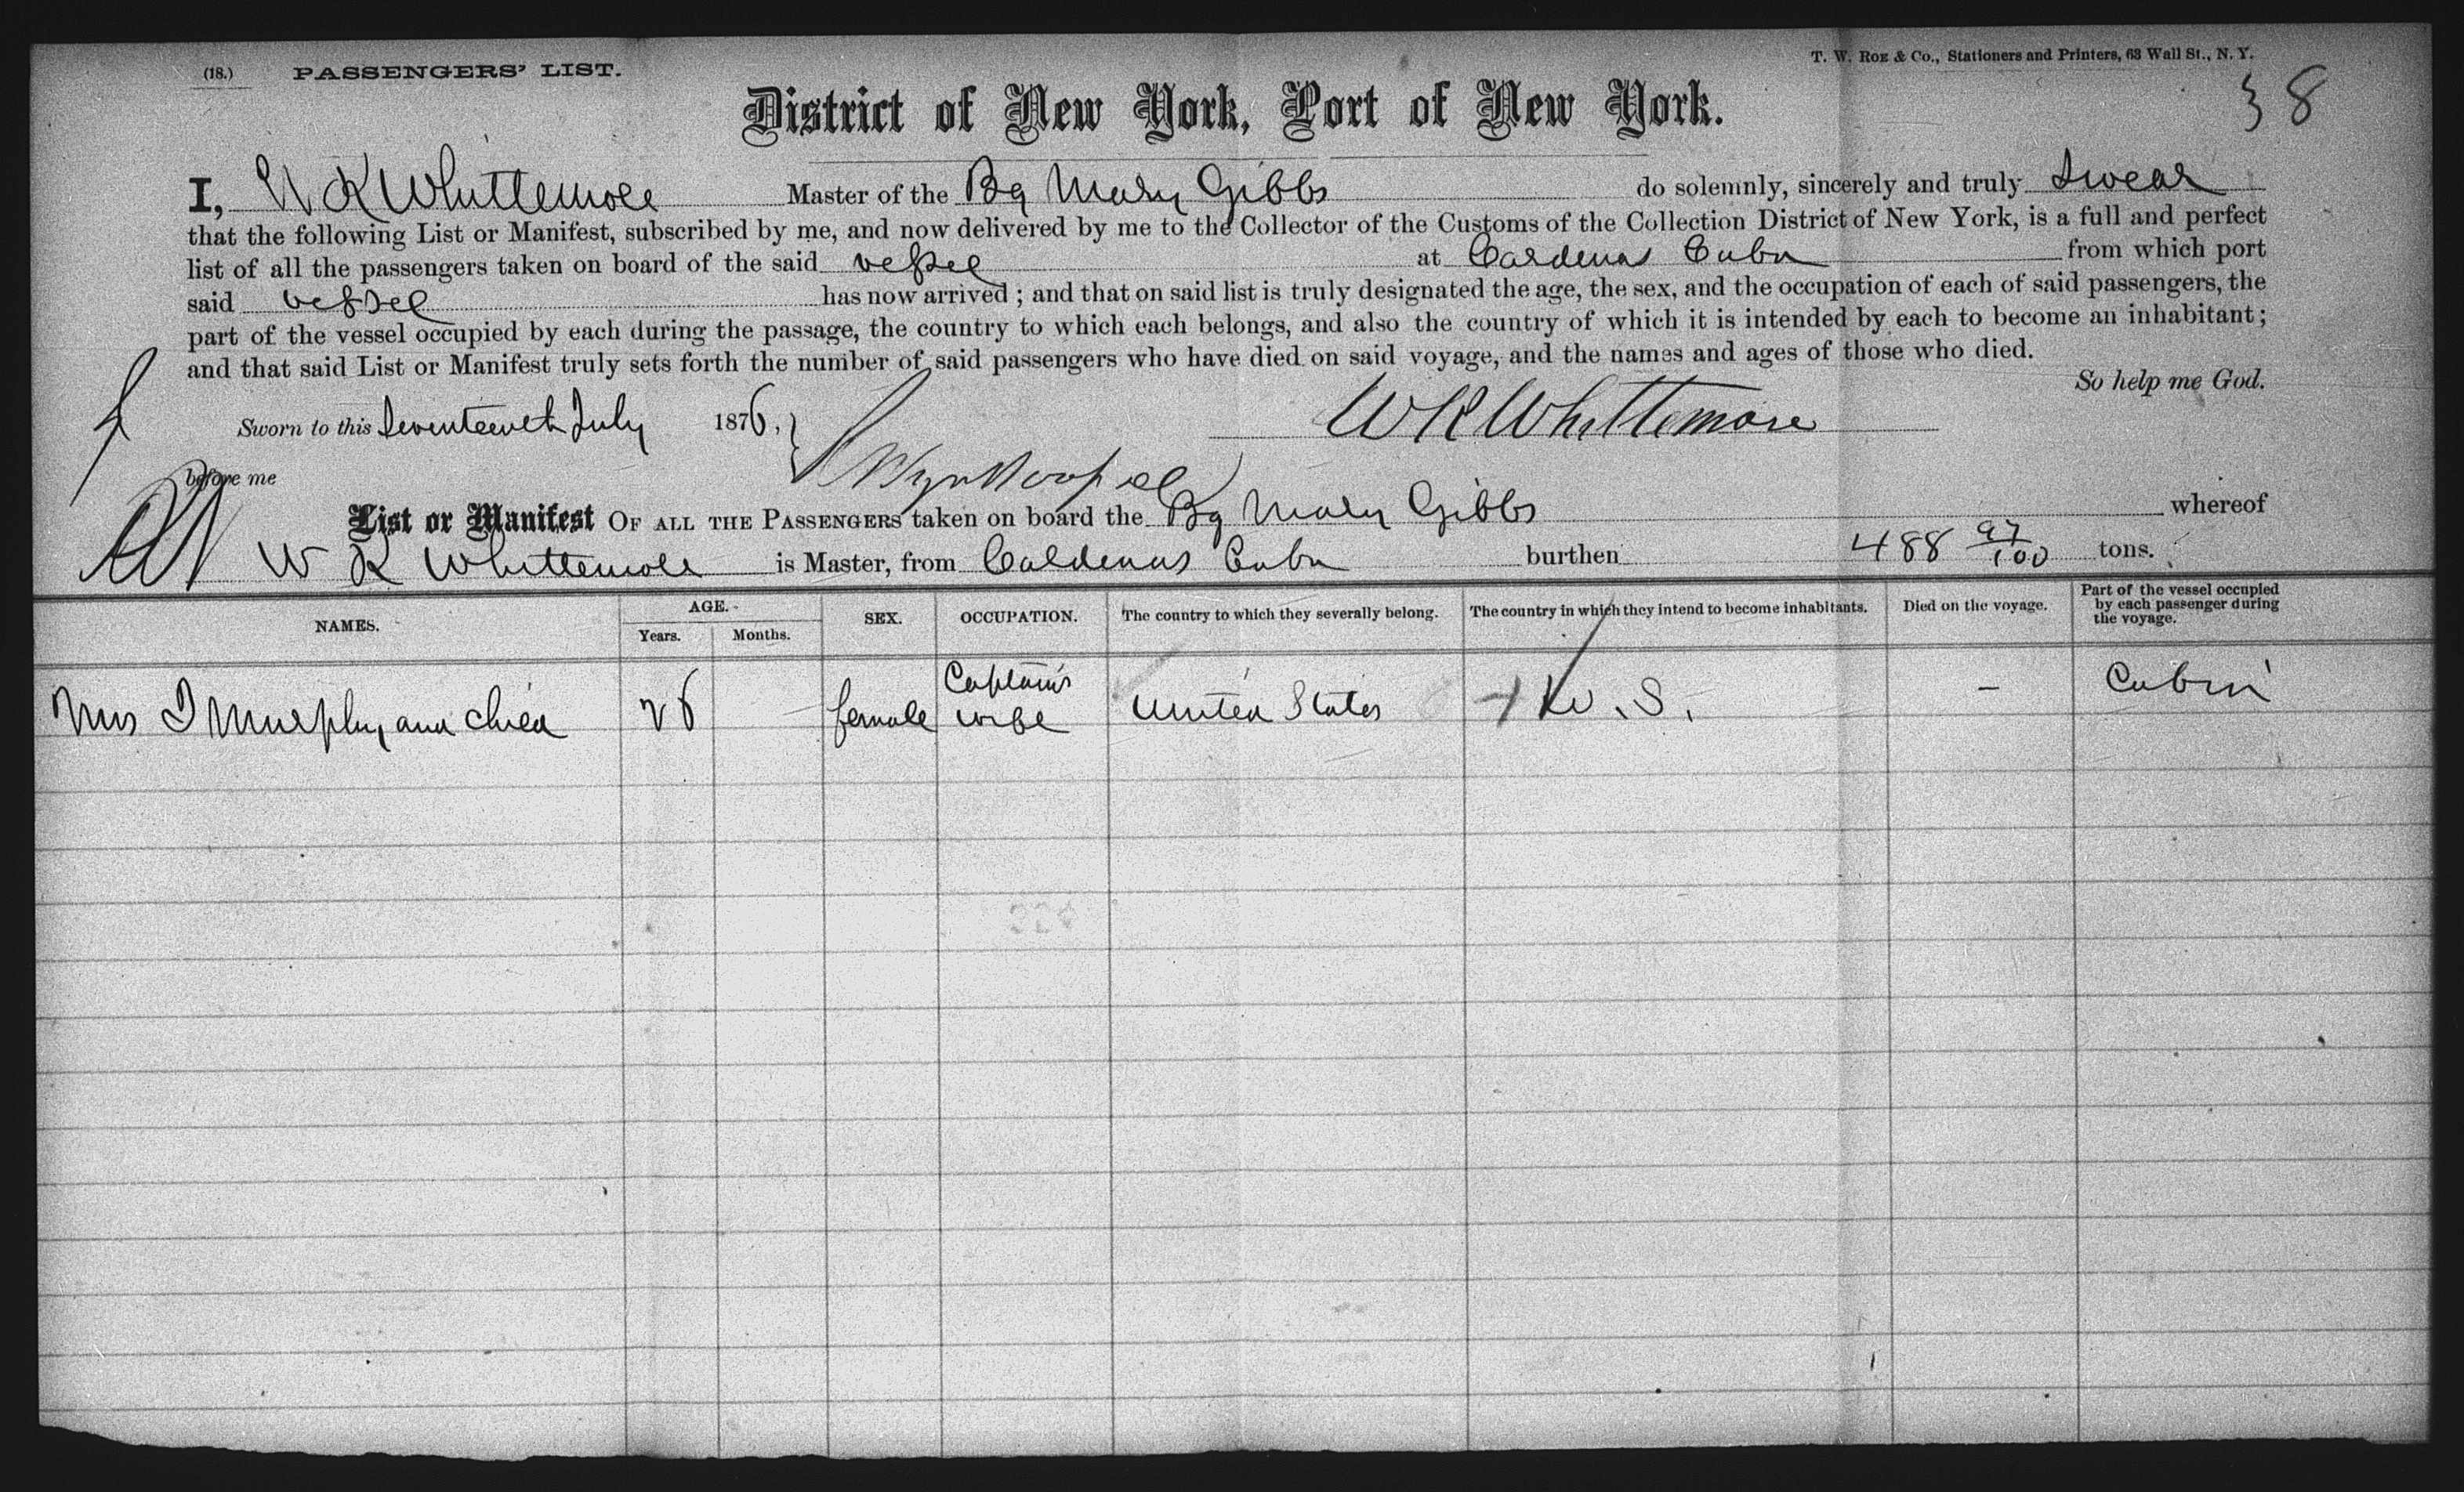 (18.) PASSENGERS' LIST.
T. W. ROE & CO., Stationers and Printers, 63 Wall St., N. Y.
8
District of New York, Port of New York.
I, W K Whittemore Master of the Bg Mary Gibbs do solemnly, sincerely and truly swear
that the following List or Manifest, subscribed by me, and now delivered by me to the Collector of the Customs of the Collection District of New York, is a full and perfect
list of all the passengers taken on board of the said vessel at Cardenas Cuba from which port
said vessel has now arrived ; and that on said list is truly designated the age, the sex, and the occupation of each of said passengers, the
part of the vessel occupied by each during the passage, the country to which each belongs, and also the country of which it is intended by each to become an inhabitant;
and that said List or Manifest truly sets forth the number of said passengers who have died on said voyage, and the names and ages of those who died.
So help me God.
Sworn to this Seventeenth July 1876,
W K Whittemore
before me
List or Manifest OF ALL THE PASSENGERS taken on board the Bg Mary Gibbs whereof
W K Whittemore is Master, from Cardenas Cuba burthen 488 97/100 tons.
NAMES. AGE. Years. Months. SEX. OCCUPATION. The country to which they severally belong. The country in which they intend to become inhabitants. Died on the voyage. Part of the vessel occupied by each passenger during the voyage.
Mrs I Murphy and child 26 female Captain's wife United States U.S. – Cabin